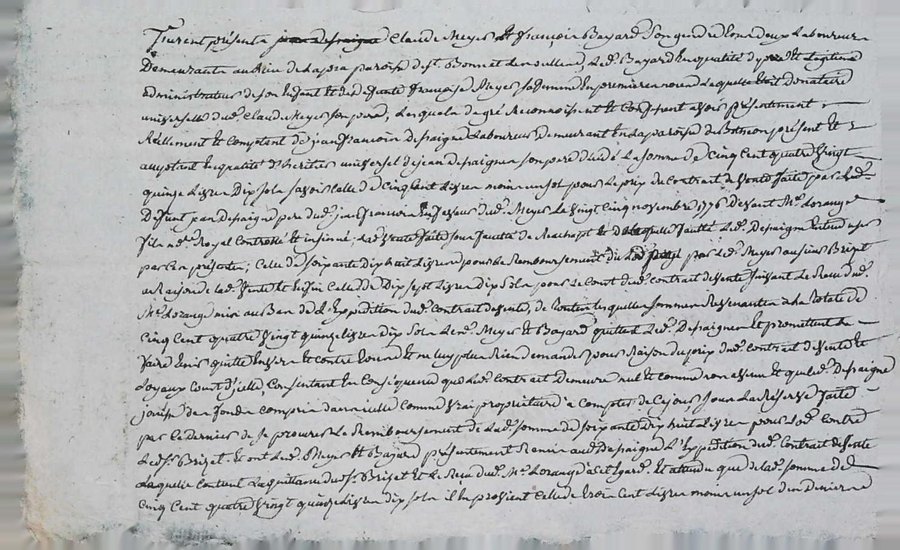 Furent présents Claude Meyer et françois Bayard Son gendre tous deux Laboureurs
Demeurants au lieu de paroisse de st Bonnet Led Bayard En qualité de pere et Légitime
administrateur de son Enfant et de defunte françoise Meyer sa femme En premieres noces Laquelle étoit Donataire
universelle dud Claude Meyer son pere, Lesquels de gré Reconnoissent et Confessent avoir présentement
Réellement et Comptant de jean françois defraigne Laboureur demeurant En la paroisse de présent et
acceptant En qualité d'héritier universel de jean defraigne son pere La somme de Cinq Cent quatre Vingt
quinze Livres Dix Sols savoir Celle de Cinq Cent Livres moins un sol pour Le prix du Contrat de Vente faite par Led
Défunt jean defraigne pere dud jean françois En faveur dud Meyer Le Vingt Cinq novembre 1776 devant Me Lorange
fils ne Royal Controllé et insinué, Lad Vente faite sous faculté de Reachapt de Laquelle faculté Led Defraigne Entend user
par Ces présentes; Celle de soixante dix huit Livres pour Le Remboursement par Led Meyer au sieur Brizet
de Lad Vente Et Enfin Celle de Dix Sept Livres dix Sols pour Le Cout dud Contrat de Vente suivant Le Recu dud
Me Lorange mis au Bas de L'Expedition dud Contrat de Vente, de toutes Lesquelles sommes Revenantes a La Totale de
Cinq Cent quatre Vingt quinze Livres dix Sols Les Meyer et Bayard quittent Led Defraigne Et promettent Le
faire tenir quitte Envers et Contre tous et ne luy plus Rien demander pour Raison du prix dud Contrat de Vente Et
Loyaux Couts d'icelle, Consentent En Conséquence que Led Contrat Demeure nul et comme non avenu Et que Led Defraigne
jouisse des fonds compris dans icelle comme Vrai propriétaire a compter de Ce jour, sous La Réserve faite
par Ce dernier de se procurer Le Remboursement de Lad somme de soixante dix huit Livres pour Lod contre
Led sr Brizet Et ont Led Meyer Et Bayard présentement Remis aud Defraigne L'Expedition dud Contrat de Vente
Laquelle contient La quittance dud sr Brizet et Le Recu dud Me Lorange Et attendu que de Lad somme de
Cinq Cent quatre Vingt quinze Livres dix Sols il En provient Celle de Cent Livres moins un sol